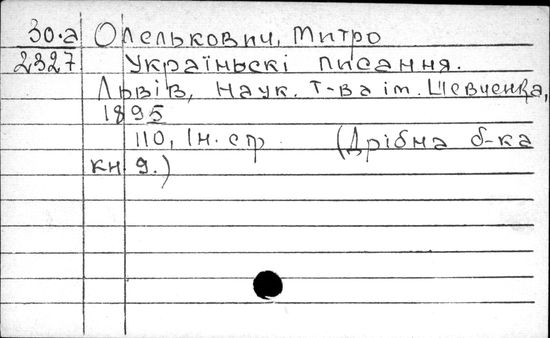 30.а Олелькович, Митро
2327 Україньскі писання.
Львів, Наук. т-ва ім. Шевченка,
1895
110, Iн. ср. (Дрібна б-ка
кн 9.)